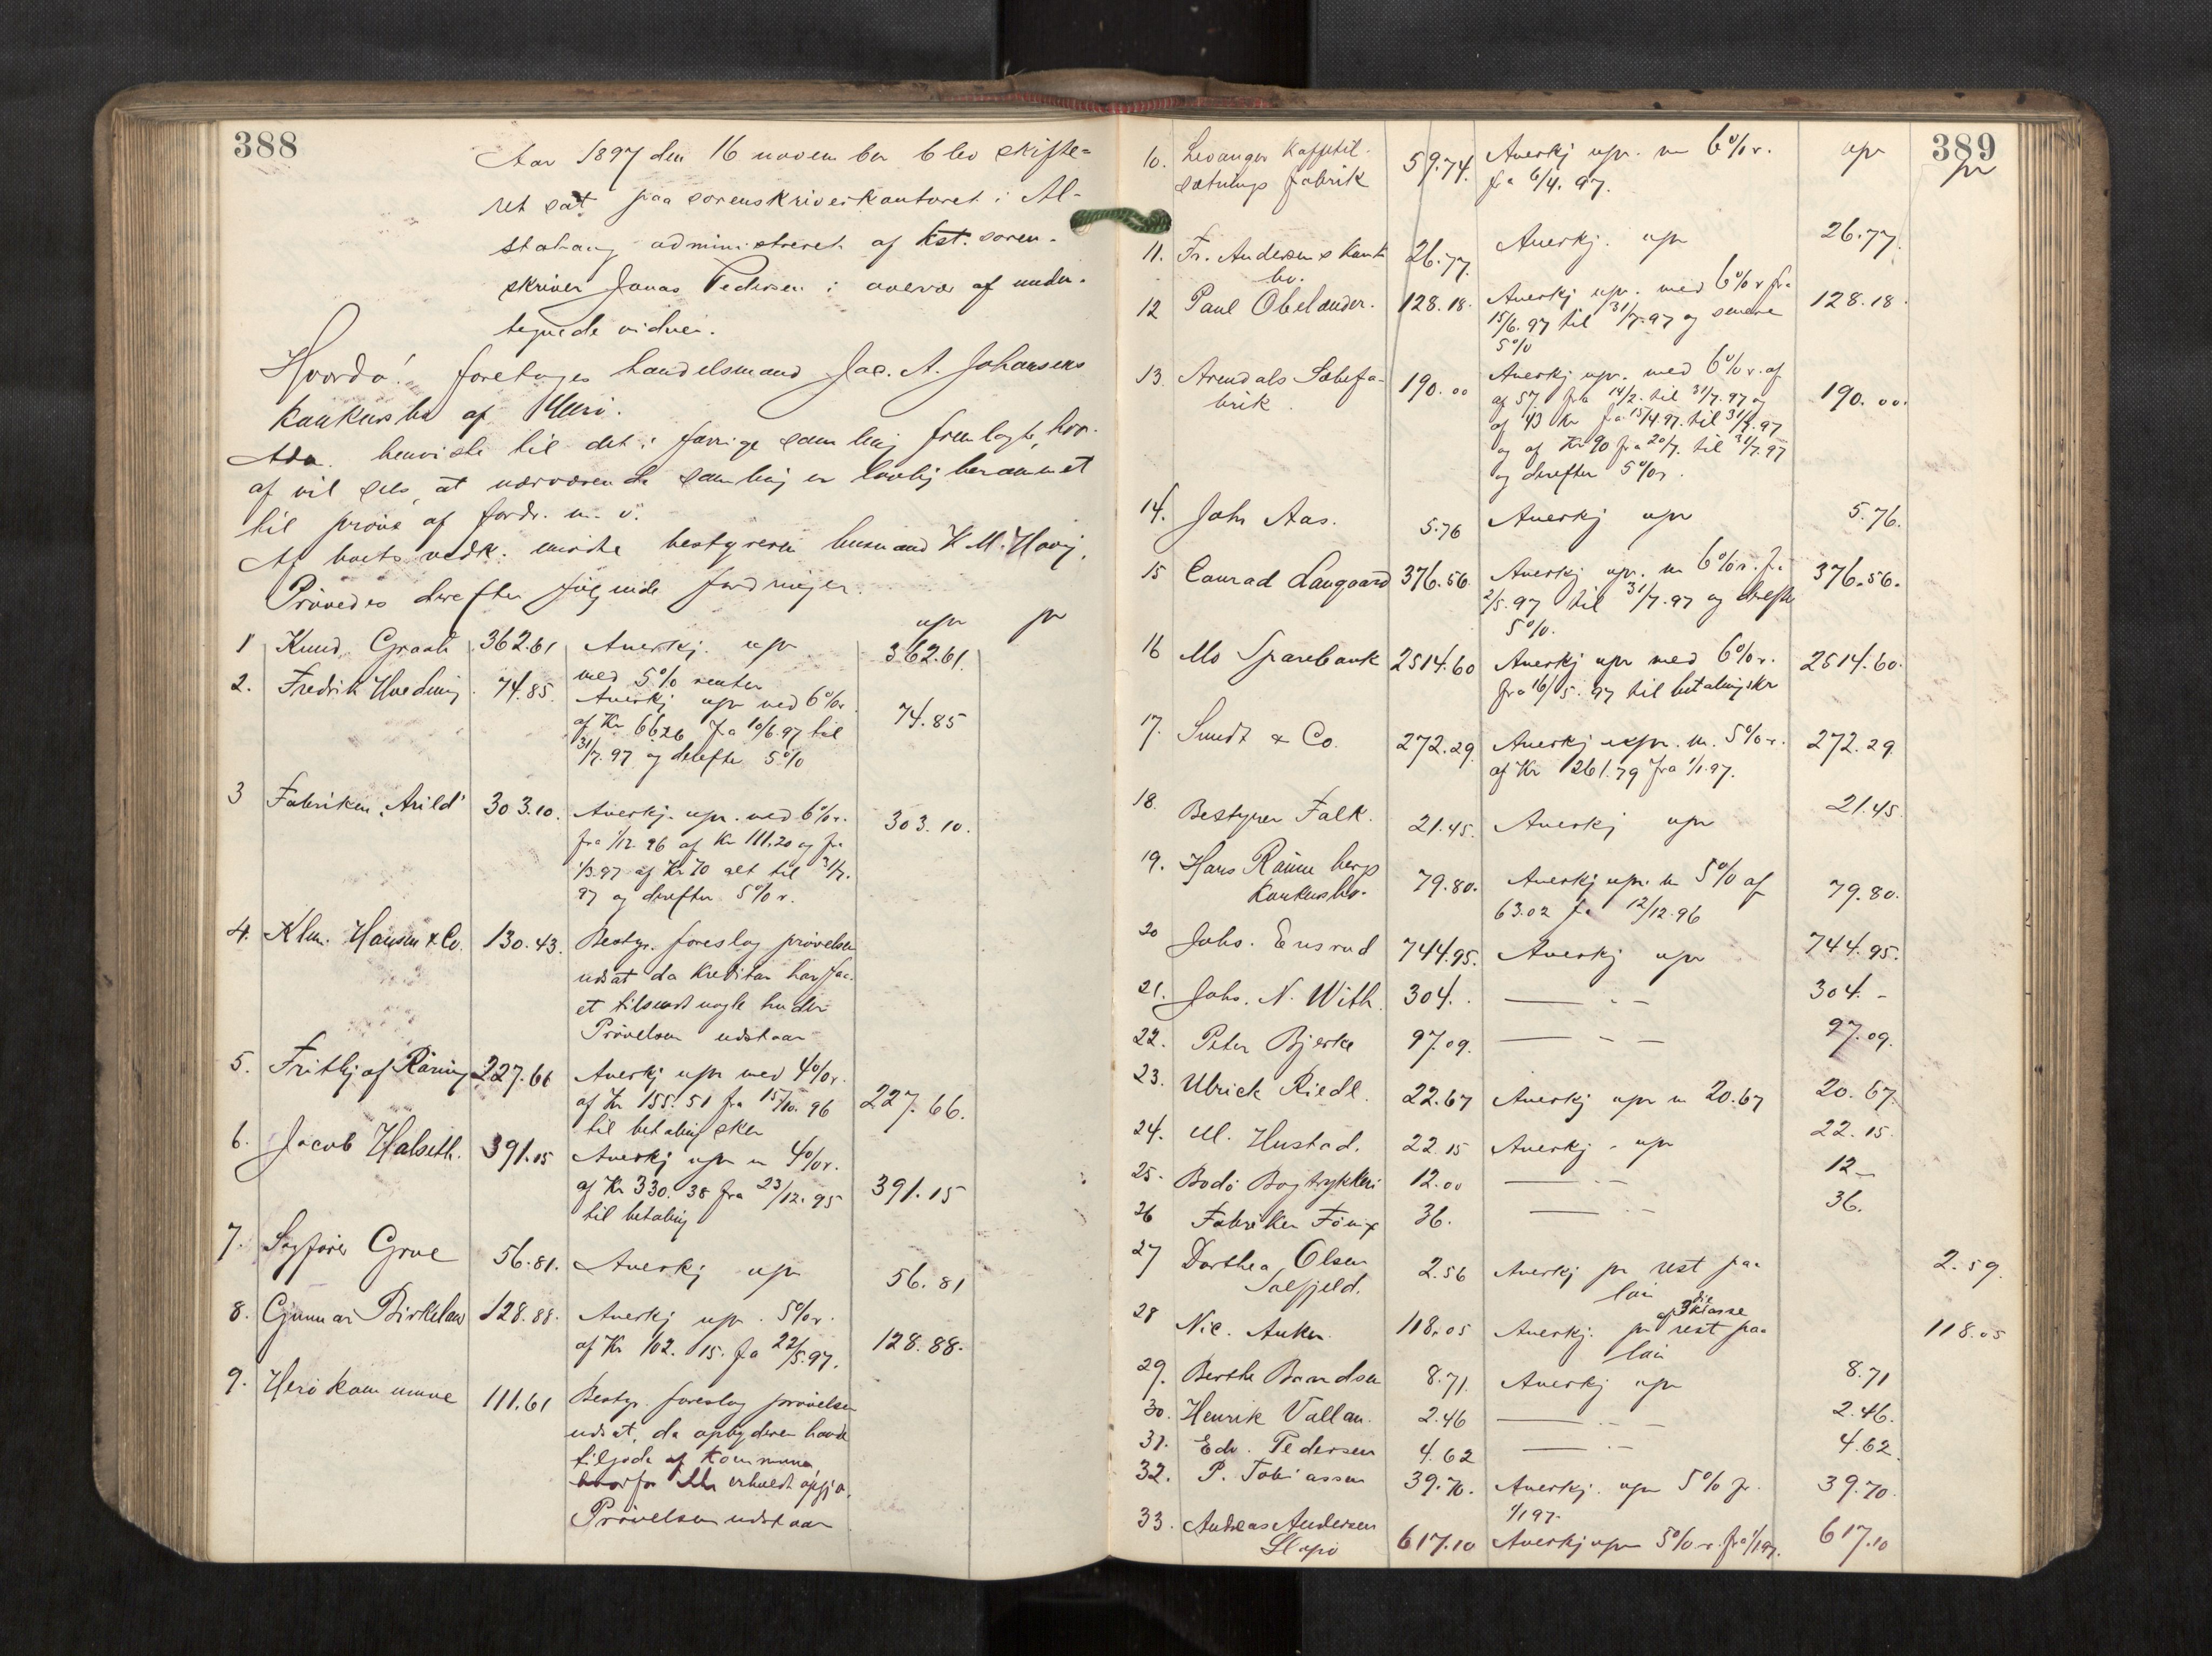 388
Aar 1897 den 16 november blev skifte=
ret sat paa sorenskriverkontoret i Al-
stahaug administreret af kst. soren-
skriver Jonas Pedersen i overvær af under-
tegnede vidner.
Hvorda! foretoges handelsmand Jac. A. Johansens
konkursbo af Herø.
Adm. henviste til det i forrige samling fremlagte, hvor-
af vil sees, at nærværende samling er lovlig berammet
til prøve af fordr. m. v.
Af boets vedk. mødte bestyreren husmand K. M. Havig.
Prøvedes derefter følgende fordringer.
upr pr
1 Knud Graah 362.61 Anerkj. upr 362.61
med 5% renter
2. Fredrik Hveding 74.85 Anerkj upr med 6%r
af Kr 66.26 fra 10/6 97 til 74.85
31/7. 97 og derefter 5%
3 Fabriken "Arild" 303.10. Anerkj. upr. med 6%r. 303.10.
fra 1/12 96 af Kr 111.20 og fra
1/3 97 af Kr 70 alt til 31/7.
97 og derefter 5%r.
4. Klm. Hansen & Co. 130.43. Bestyr. foreslog prøvelsen
udsat da kreditor har faa-
et tilsendt nogle huder
Prøvelsen udstaar
5. Frithjof Råring 227.66 Anerkj upr med 4%r.
af Kr 155.51 fra 15/10. 96 227.66.
til betaling sker
6. Jacob Halseth. 391.15 Anerkj upr m 4%r.
af Kr 330.38 fra 23/12. 95 391.15
til betaling
7. Sagfører Grue 56.81. Anerkj upr 56.81
8. Gunnar Birkeland 128.88. Anerkj upr. 5%r.
af Kr 102.15. fra 22/5 97. 128.88.
9. Herø kommune 111.61 Bestyr. foreslog prøvelsen
udsat, da opbyderen havde
tilgode af kommunen
hvorfor erholdt opgjø.
Prøvelsen udstaar
389
upr pr
10. Levanger Kaffetil- 59.74. Anerkj upr. m 6%r.
sætnings fabrik fra 6/4. 97.
11. Fr. Andersens konk 26.77. Anerkj. upr 26.77.
bo.
12 Paul Obelander. 128.18. Anerkj upr. med 6%r fra 128.18.
15/6. 97 til 31/7. 97 og senere
5%
13. Arendals Sæbefa- 190.00 Anerkj upr. med 6%r. af 190.00.
brik. af 57. fra 14/2. til 31/7. 97 og
af 43 kr fra 15/4 97. til 31/7. 97
og af Kr 90 fra 20/7. til 31/7. 97
og derefter 5%r.
14. John Aas. 5.76 Anerkj upr 5.76.
15 Conrad Langaard 376.56. Anerkj upr. m 6%r. fra 376.56.
2/5. 97 til 31/7. 97 og derefter
5%.
16 Mo Sparebank 2514.60 Anerkj upr med 6%r. 2514.60.
fra 16/5. 97 til betaling sker
17. Sundt & Co. 272.29. Anerkj upr. m. 5%r. 272.29.
af Kr 261.79 fra 1/1. 97.
18. Bestyrer Falk. 21.45. Anerkj upr 21.45
19. Hans Raumbergs 79.80. Anerkj upr. m 5% af 79.80.
Konkursbo. 63.02 fra 12/12. 96
20 Johs. Ensrud 744.95. Anerkj upr 744.95.
21. Johs. N. With. 304. — " — 304. -
22. Peter Bjerke 97.09. — " — 97.09.
23. Ulrick Riedl. 22.67 Anerkj upr m 20.67 20.67.
24. M. Hustad. 22.15 Anerkj. upr 22.15.
25. Bodø Bogtrykkeri 12.00 — " — 12 -
26 Fabriken Fönix 36. — " — 36.
27 Dorthea Olsen 2.56 Anerkj pr rest paa 2.59.
Salfjeld. løn
28 Nic. Anker. 118.05 Anerkj. pr af 3die klasse rest paa 118.05
løn
29. Berthe Brandsen 8.71. Anerkj upr 8.71
30. Henrik Vallan. 2.46 — " — 2.46.
31. Edv. Pedersen 4.62 — " — 4.62.
32. P. Tobiassen 39.70. Anerkj. upr 5% fr. 39.70.
1/1 97.
33. Andreas Andersen 617.10 Anerkj upr 5%r. fra 1/1 97. 617.10
Slapø